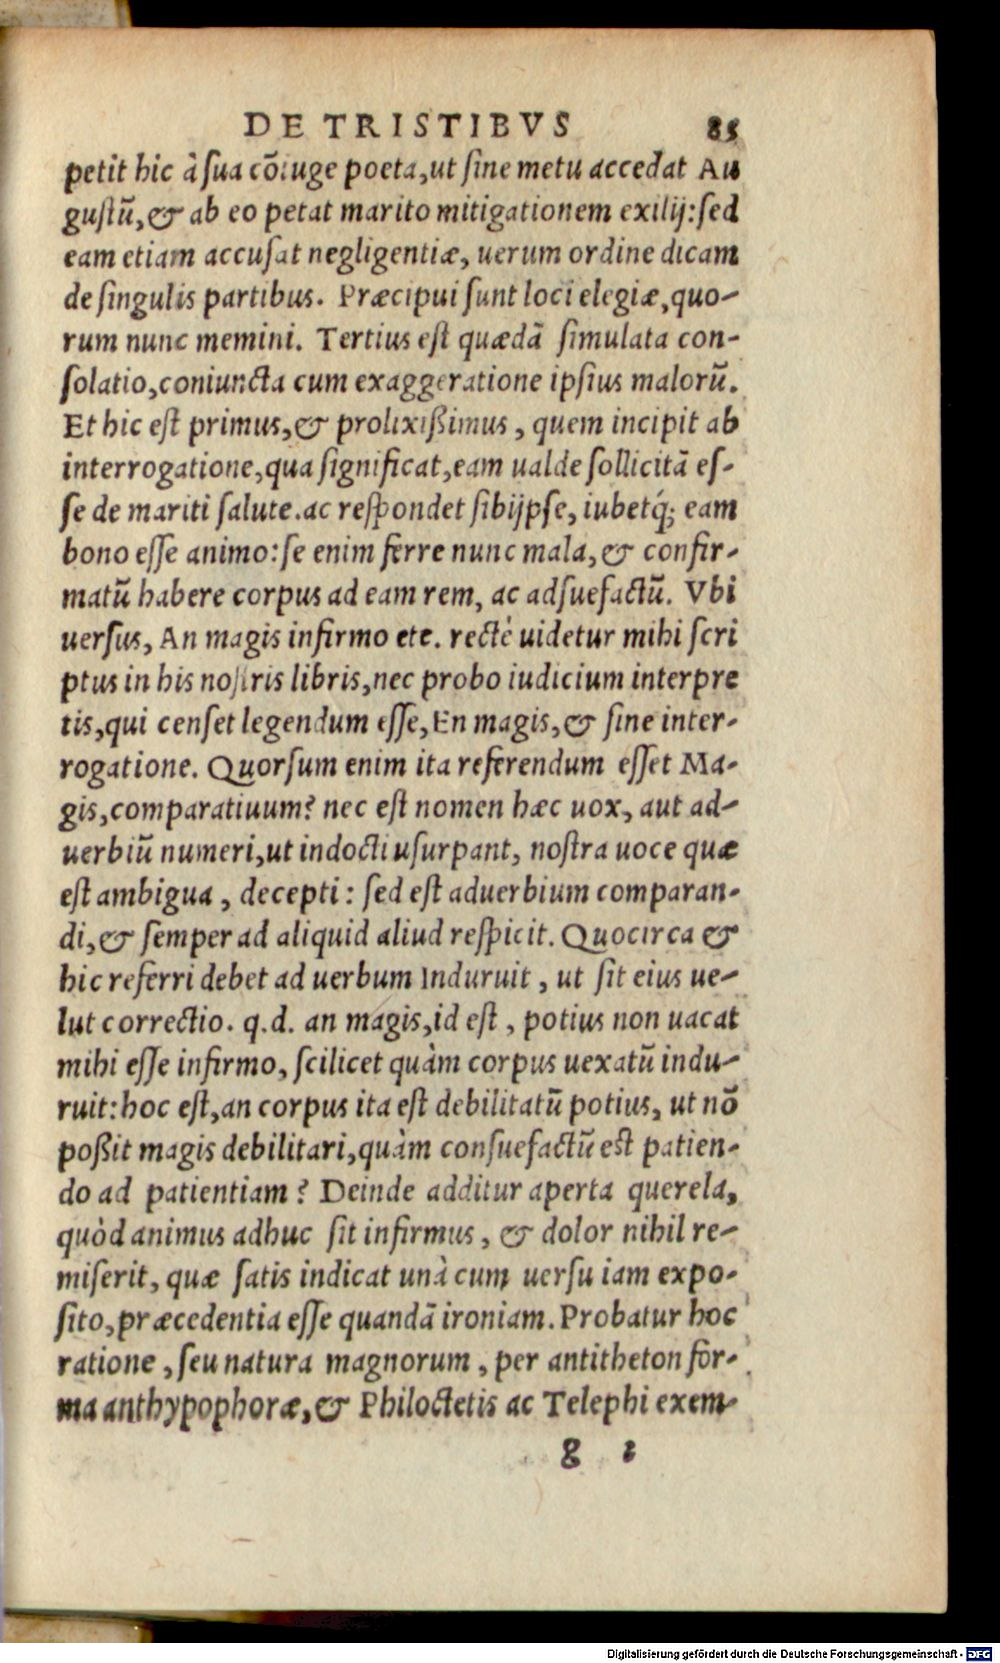 DE TRISTIBVS 85
petit hic à sua cõiuge poeta, ut sine metu accedat Au
gustũ, & ab eo petat marito mitigationem exilij: sed
eam etiam accusat negligentiæ, uerum ordine dicam
de singulis partibus. Præcipui sunt loci elegiæ, quo-
rum nunc memini. Tertius est quædã simulata con-
solatio, coniuncta cum exaggeratione ipsius malorũ.
Et hic est primus, & prolixißimus, quem incipit ab
interrogatione, qua significat, eam ualde sollicitã es-
se de mariti salute. ac respondet sibijpse, iubetq́; eam
bono esse animo: se enim ferre nunc mala, & confir-
matũ habere corpus ad eam rem, ac adsuefactũ. Vbi
uersus, An magis infirmo etc. rectè uidetur mihi scri
ptus in his nostris libris, nec probo iudicium interpre
tis, qui censet legendum esse, En magis, & sine inter-
rogatione. Quorsum enim ita referendum esset Ma-
gis, comparatiuum? nec est nomen hæc uox, aut ad-
uerbiũ numeri, ut indocti usurpant, nostra uoce quæ
est ambigua, decepti: sed est aduerbium comparan-
di, & semper ad aliquid aliud respicit. Quocirca &
hic referri debet ad uerbum Induruit, ut sit eius ue-
lut correctio. q.d. an magis, id est, potius non uacat
mihi esse infirmo, scilicet quàm corpus uexatũ indu-
ruit: hoc est, an corpus ita est debilitatũ potius, ut nõ
poßit magis debilitari, quàm consuefactũ est patien-
do ad patientiam? Deinde additur aperta querela,
quòd animus adhuc sit infirmus, & dolor nihil re-
miserit, quæ satis indicat unà cum uersu iam expo-
sito, præcedentia esse quandã ironiam. Probatur hoc
ratione, seu natura magnorum, per antitheton for-
ma anthypophoræ, & Philoctetis ac Telephi exem-
g 2
Digitalisierung gefördert durch die Deutsche Forschungsgemeinschaft - DFG